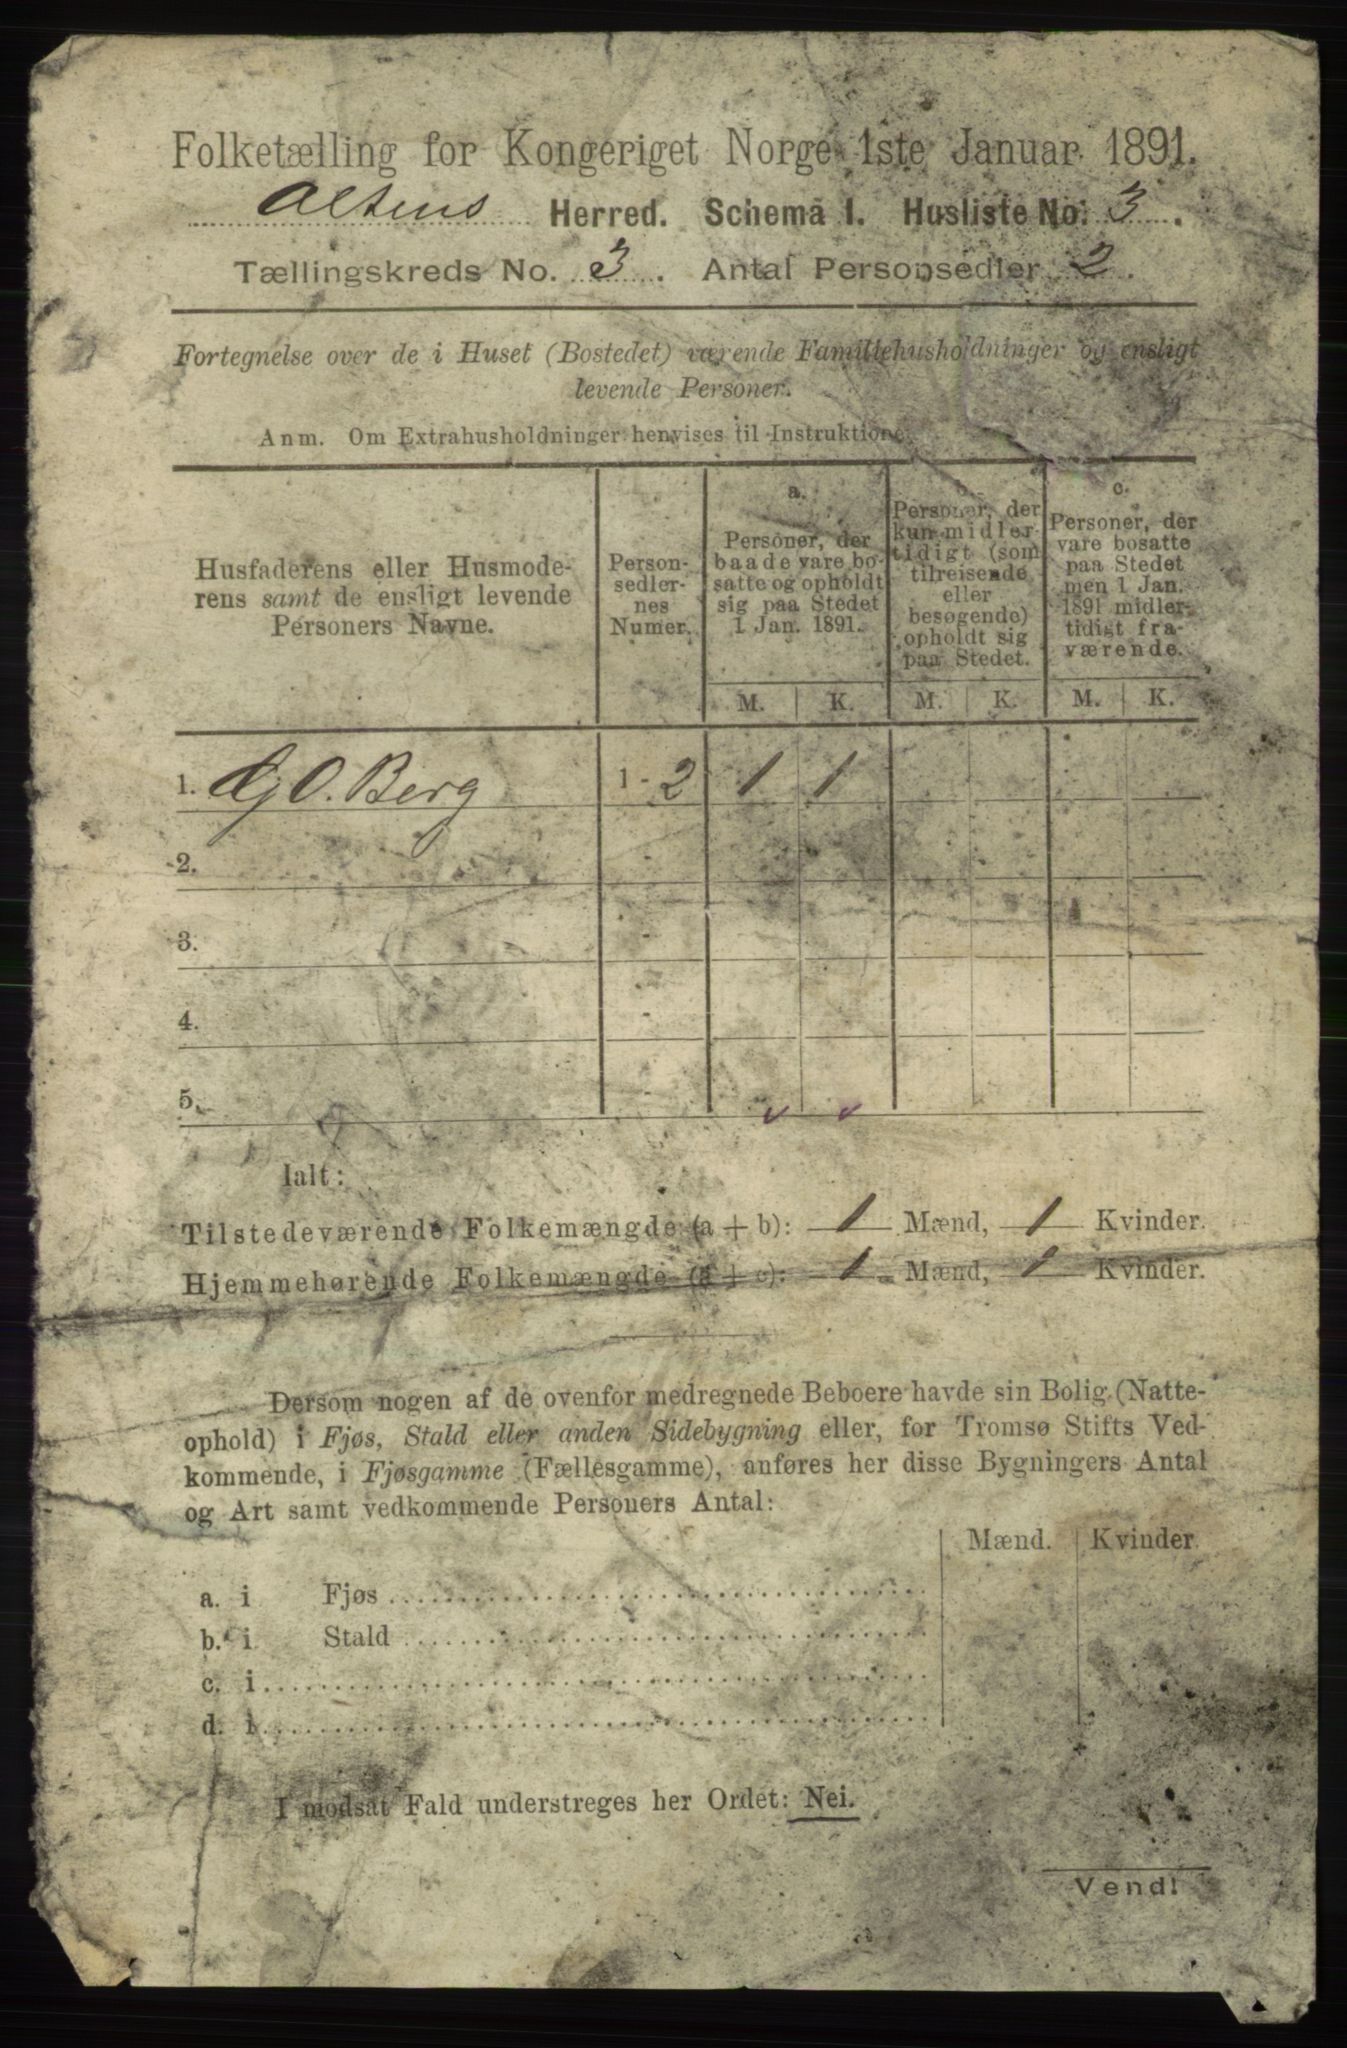 Folketælling for Kongeriget Norge 1ste Januar 1891.
Altens Herred. Schema I. Husliste No. 3.
Tællingskreds No. 3. Antal Personsedler 2.
Fortegnelse over de i Huset (Bostedet) værende Familiehusholdninger og ensligt
levende Personer.
Anm. Om Extrahusholdninger henvises til Instruktione
Husfaderens eller Husmode-
rens samt de ensligt levende
Personers Navne.
Person-
sedler-
nes
Numer.
a.
Personer, der
baade vare bo-
satte og opholdt
sig paa Stedet
1 Jan. 1891.
Personer, der
kun midler-
tidigt (som
tilreisende
eller
besøgende)
opholdt sig
paa Stedet.
c.
Personer, der
vare bosatte
paa Stedet
men 1 Jan.
1891 midler-
tidigt fra-
værende.
M. K. M. K. M. K.
1. O. Berg 1-2 1 1
2. -
3. -
4. -
5. -
Ialt:
Tilstedeværende Folkemængde (a + b): 1 Mænd, 1 Kvinder.
Hjemmehørende Folkemængde (a + c): 1 Mænd, 1 Kvinder.
Dersom nogen af de ovenfor medregnede Beboere havde sin Bolig (Natte-
ophold) i Fjøs, Stald eller anden Sidebygning eller, for Tromsø Stifts Ved-
kommende, i Fjøsgamme (Fællesgamme), anføres her disse Bygningers Antal
og Art samt vedkommende Personers Antal:
Mænd. Kvinder.
a. i Fjøs
b. i Stald
c. i
d. i
I modsat Fald understreges her Ordet: Nei.
Vend!